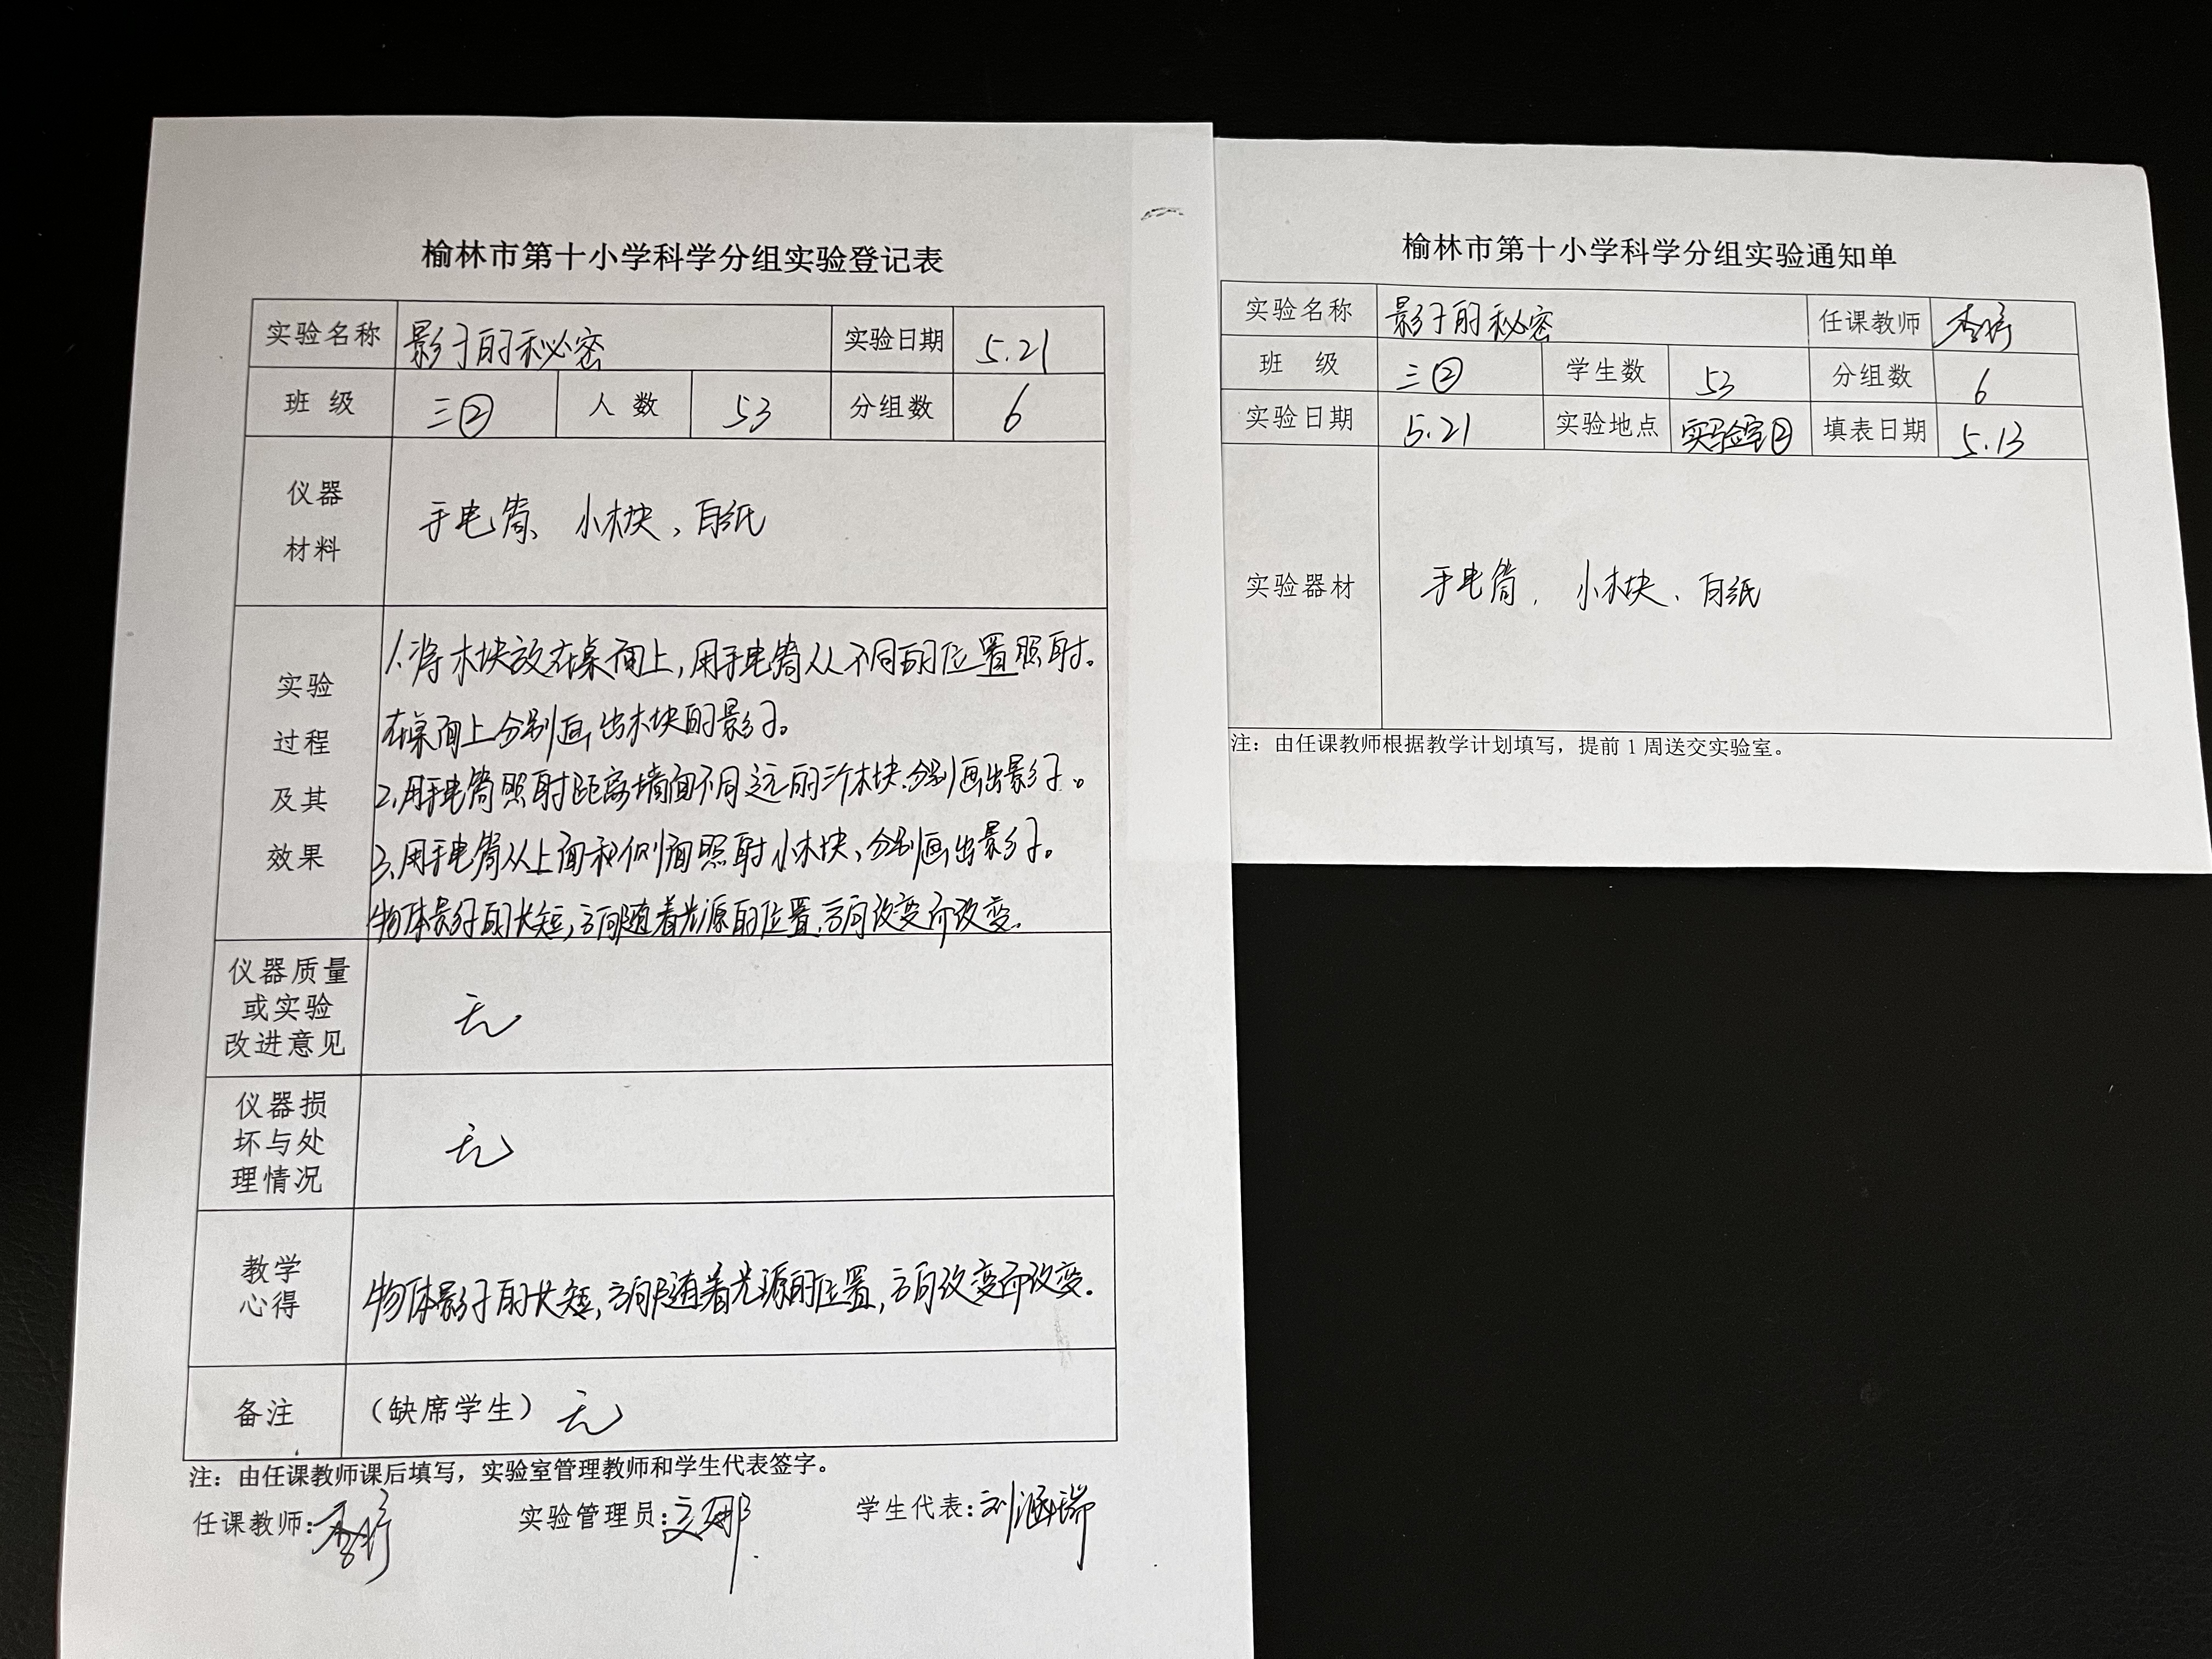 榆林市第十小学科学分组实验登记表
实验名称 影子的秘密 实验日期 5.21
班 级 三② 人 数 53 分组数 6
仪器
材料
手电筒、小木块、白纸
实验
过程
及其
效果
1.将木块放在桌面上,用手电筒从不同的位置照射。
在桌面上分别画出木块的影子。
2.用手电筒照射距离墙面不同远的三个木块.分别画出影子。
3.用手电筒从上面和侧面照射小木块、分别画出影子。
物体影子的长短,方向随着光源的位置.方向改变而改变.
仪器质量
或实验
改进意见
无
仪器损
坏与处
理情况
无
教学
心得
物体影子的长短,方向随着光源的位置,方向改变而改变.
备注 (缺席学生) 无
注：由任课教师课后填写，实验室管理教师和学生代表签字。
任课教师: 实验管理员: 学生代表:刘涵瑞
榆林市第十小学科学分组实验通知单
实验名称 影子的秘密 任课教师
班 级 三② 学生数 53 分组数 6
实验日期 5.21 实验地点 实验室② 填表日期 5.13
实验器材 手电筒、小木块、白纸
注：由任课教师根据教学计划填写，提前1周送交实验室。